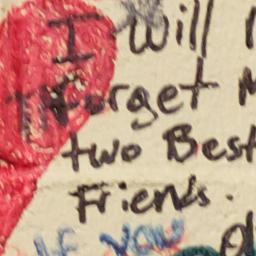 I will
forget
two Best
Friends.
If you